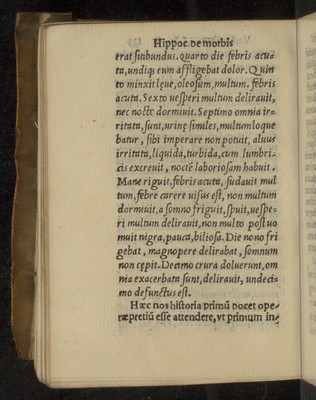 Hippoc. de morbis
erat sitibundus. quarto die febris acu-
ta, undiq; eum affligebat dolor. Quin
to minxit leue, oleosum, multum. febris
acuta. Sexto uesperi multum delirauit,
nec nocte dormiuit. Septimo omnia ir-
ritata, sunt, urinę similes, multum loque
batur, sibi imperare non potuit, aluus
irritata, liquida, turbida, cum lumbri-
cis excreuit, nocté laboriosam habuit.
Mane riguit, febris acuta, sudauit mul
tum, febre carere uisus est, non multum
dormiuit, a somno friguit, spuit, uespe-
ri multum delirauit, non multo post uo
muit nigra, pauca, biliosa. Die nono fri
gebat, magnopere delirabat, somnum
non cępit. Decimo crura doluerunt, om
nia exacerbata sunt, delirauit, undeci-
mo defunctus est.
Hæc nos historia primū docet ope-
ræpretiū esse attendere, vt primum in-